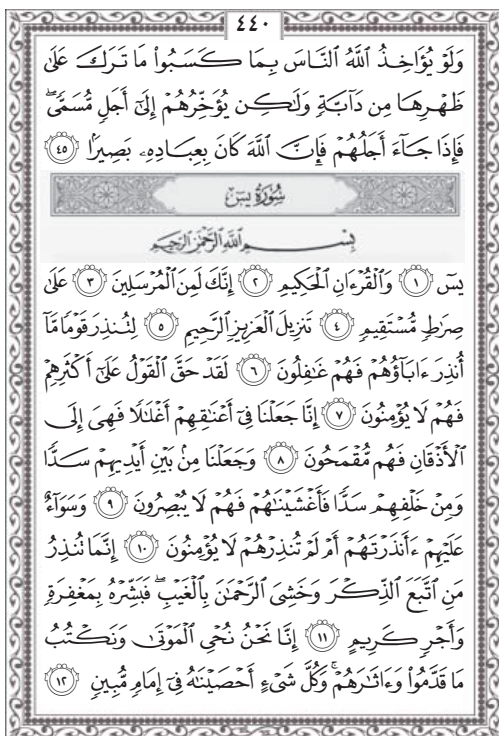 ٤٤٠
وَلَوْ يُؤَاخِذُ ٱللَّهُ ٱلنَّاسَ بِمَا كَسَبُوا۟ مَا تَرَكَ عَلَىٰ
ظَهْرِهَا مِن دَآبَّةٍ وَلَٰكِن يُؤَخِّرُهُمْ إِلَىٰٓ أَجَلٍ مُّسَمًّى ۖ
فَإِذَا جَآءَ أَجَلُهُمْ فَإِنَّ ٱللَّهَ كَانَ بِعِبَادِهِۦ بَصِيرًۢا ٤٥
سُورَةُ يسٓ
بِسْمِ ٱللَّهِ ٱلرَّحْمَٰنِ ٱلرَّحِيمِ
يسٓ ١ وَٱلْقُرْءَانِ ٱلْحَكِيمِ ٢ إِنَّكَ لَمِنَ ٱلْمُرْسَلِينَ ٣ عَلَىٰ
صِرَٰطٍ مُّسْتَقِيمٍ ٤ تَنزِيلَ ٱلْعَزِيزِ ٱلرَّحِيمِ ٥ لِتُنذِرَ قَوْمًا مَّآ
أُنذِرَ ءَابَآؤُهُمْ فَهُمْ غَٰفِلُونَ ٦ لَقَدْ حَقَّ ٱلْقَوْلُ عَلَىٰٓ أَكْثَرِهِمْ
فَهُمْ لَا يُؤْمِنُونَ ٧ إِنَّا جَعَلْنَا فِىٓ أَعْنَٰقِهِمْ أَغْلَٰلًا فَهِىَ إِلَى
ٱلْأَذْقَانِ فَهُم مُّقْمَحُونَ ٨ وَجَعَلْنَا مِنۢ بَيْنِ أَيْدِيهِمْ سَدًّا
وَمِنْ خَلْفِهِمْ سَدًّا فَأَغْشَيْنَٰهُمْ فَهُمْ لَا يُبْصِرُونَ ٩ وَسَوَآءٌ
عَلَيْهِمْ ءَأَنذَرْتَهُمْ أَمْ لَمْ تُنذِرْهُمْ لَا يُؤْمِنُونَ ١٠ إِنَّمَا تُنذِرُ
مَنِ ٱتَّبَعَ ٱلذِّكْرَ وَخَشِىَ ٱلرَّحْمَٰنَ بِٱلْغَيْبِ ۖ فَبَشِّرْهُ بِمَغْفِرَةٍ
وَأَجْرٍ كَرِيمٍ ١١ إِنَّا نَحْنُ نُحْىِ ٱلْمَوْتَىٰ وَنَكْتُبُ
مَا قَدَّمُوا۟ وَءَاثَٰرَهُمْ ۚ وَكُلَّ شَىْءٍ أَحْصَيْنَٰهُ فِىٓ إِمَامٍ مُّبِينٍ ١٢